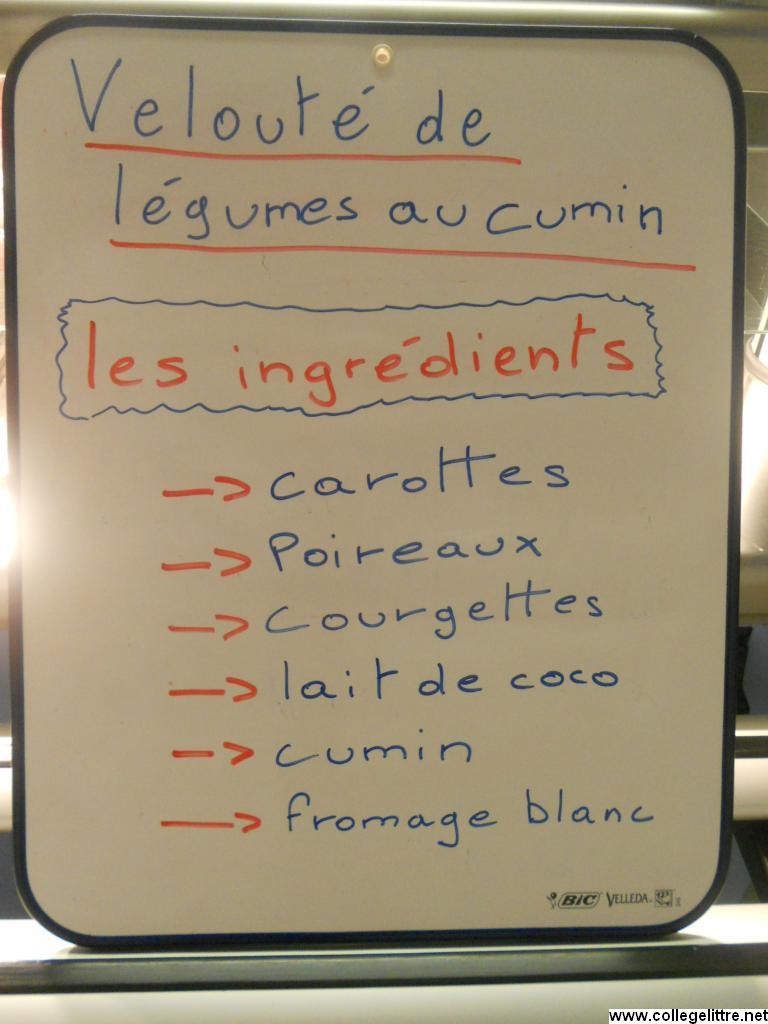 Velouté de
légumes au cumin
les ingrédients
→ carottes
→ Poireaux
→ courgettes
→ lait de coco
→ cumin
→ fromage blanc
BIC VELLEDA
www.collegelittre.net